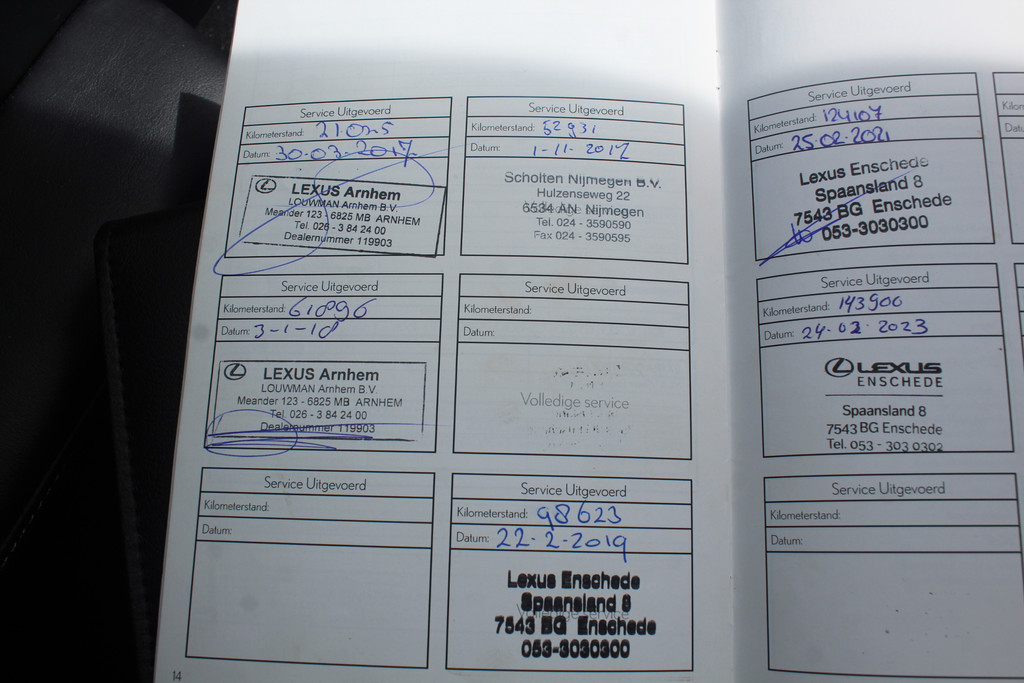 Service Uitgevoerd
Kilometerstand:
Datum: 30-03-2017
LEXUS Arnhem
LOUWMAN Arnhem B.V.
Meander 123 - 6825 MB ARNHEM
Tel. 026 - 3 84 24 00
Dealernummer 119903
Service Uitgevoerd
Kilometerstand: 52931
Datum: 1-11-2017
Scholten Nijmegen B.V.
Hulzenseweg 22
6534 AN Nijmegen
Tel. 024 - 3590590
Fax 024 - 3590595
Service Uitgevoerd
Kilometerstand: 61896
Datum: 3-1-18
LEXUS Arnhem
LOUWMAN Arnhem B.V.
Meander 123 - 6825 MB ARNHEM
Tel. 026 - 3 84 24 00
Dealernummer 119903
Service Uitgevoerd
Kilometerstand:
Datum:
Volledige service
Service Uitgevoerd
Kilometerstand:
Datum:
Service Uitgevoerd
Kilometerstand: 98623
Datum: 22-2-2019
Volledige service
Lexus Enschede
Spaansland 8
7543 BG Enschede
053-3030300
14
Service Uitgevoerd
Kilometerstand: 124107
Datum: 25-02-2021
Lexus Enschede
Spaansland 8
7543 BG Enschede
053-3030300
Service Uitgevoerd
Kilometerstand: 143900
Datum: 24-02 2023
LEXUS
ENSCHEDE
Spaansland 8
7543 BG Enschede
Tel. 053 - 303 0302
Service Uitgevoerd
Kilometerstand:
Datum: